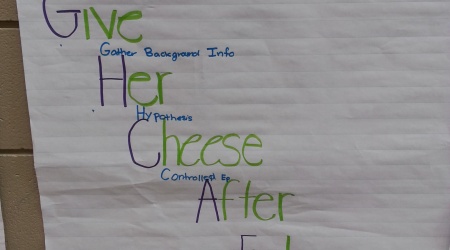 Give
Gather Background Info
Her
Hypothesis
Cheese
Controlled
After